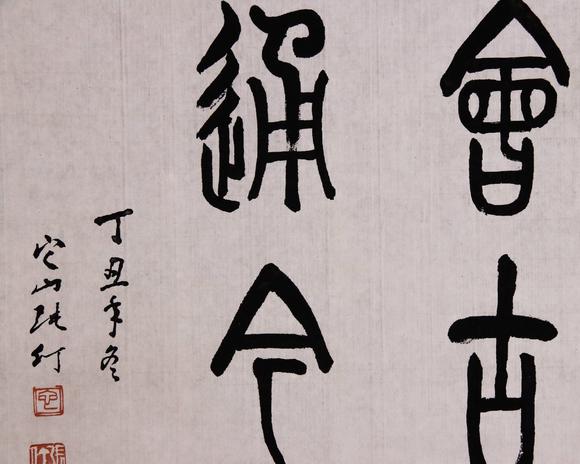 會古
通今
丁丑年冬
它山張仃